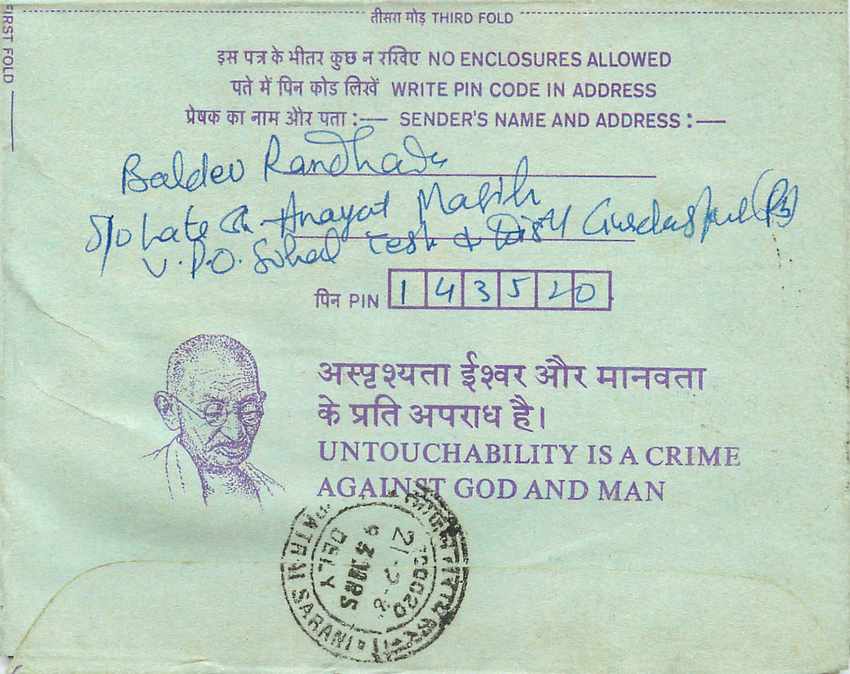 तीसरा मोड़ THIRD FOLD
FIRST FOLD
इस पत्र के भीतर कुछ न रखिए NO ENCLOSURES ALLOWED
पते में पिन कोड लिखें WRITE PIN CODE IN ADDRESS
प्रेषक का नाम और पता :— SENDER'S NAME AND ADDRESS :—
Baldev Randhawa
S/o Late Ch. Anayat Masih
V.P.O. Sohal Teh & Distt Gurdaspur (Pb)
पिन PIN 143520
अस्पृश्यता ईश्वर और मानवता
के प्रति अपराध है।
UNTOUCHABILITY IS A CRIME
AGAINST GOD AND MAN
700020
21-2-8
9 31HRS
DELY
SARANI